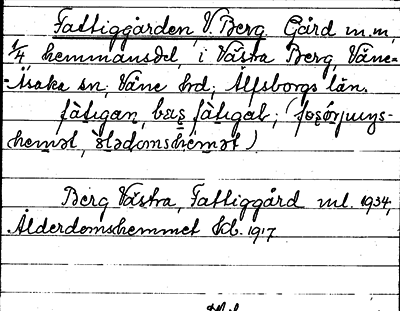 Fattiggården, V. Berg. Gård m.m,
1/4 hemmansdel, i Västra Berg, Väne-
-Åsaka sn, Väne hd; Älfsborgs län.
fàtigan, bæṣ fàtigaḷ; (fǫṣǿrjnıŋs-
hemət, ɔ̀lədomshemət)
Berg Västra, Fattiggård ml. 1934,
Ålderdomshemmet kb. 1917